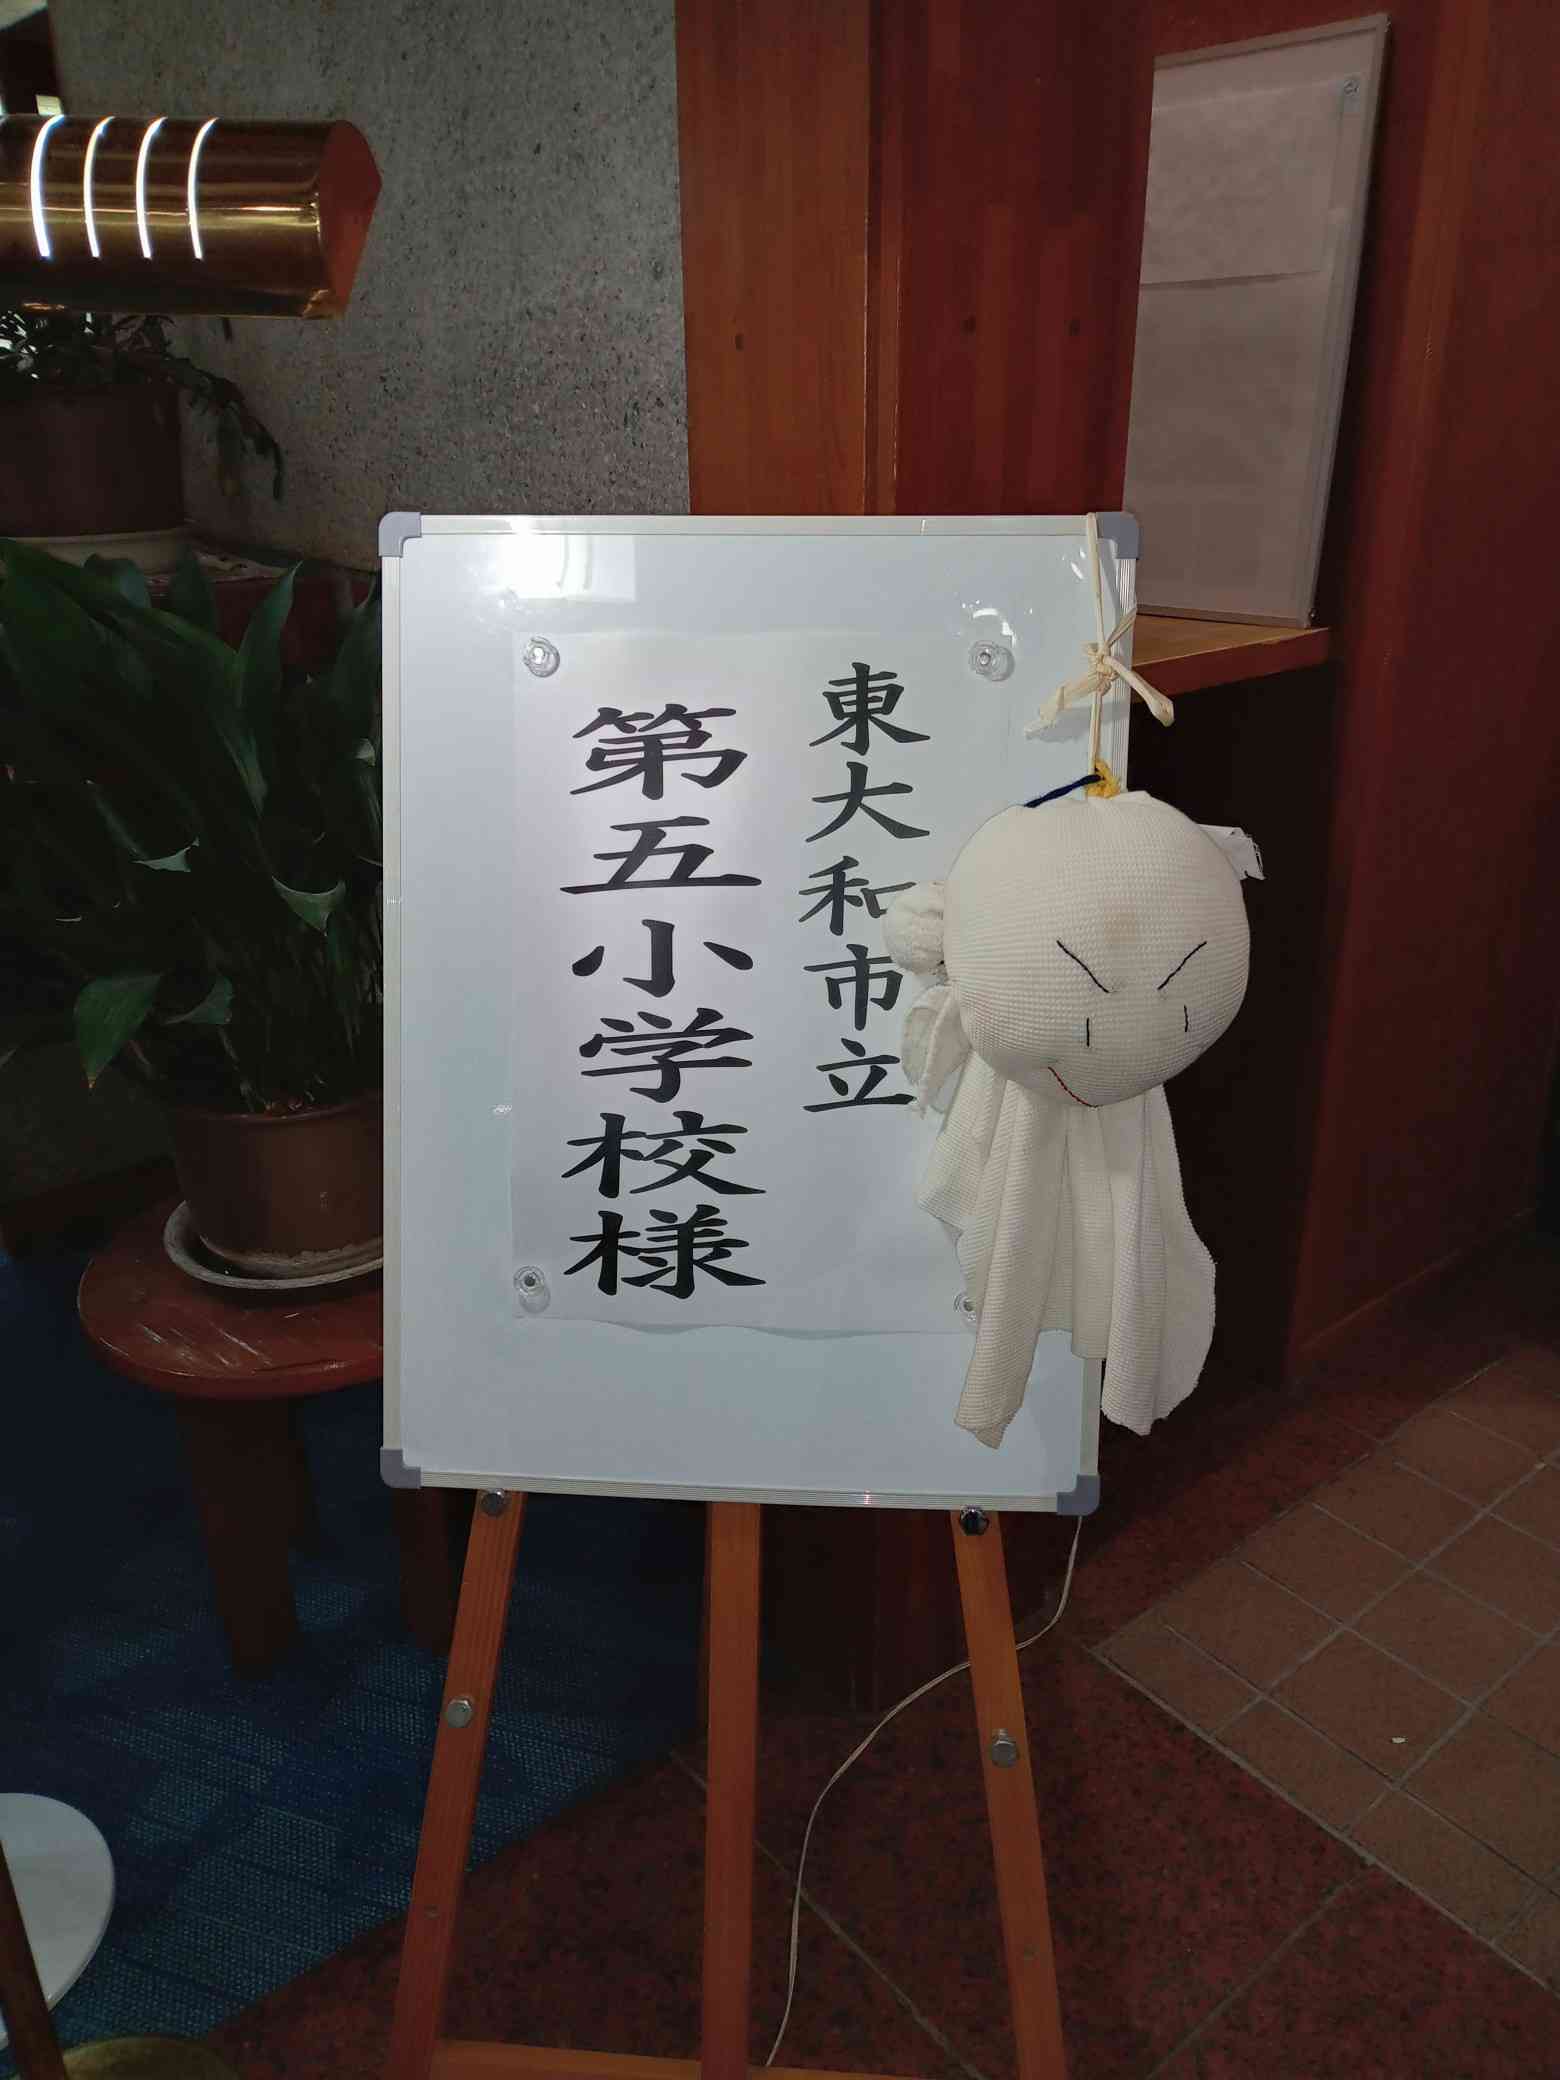 東大和市立
第五小学校様